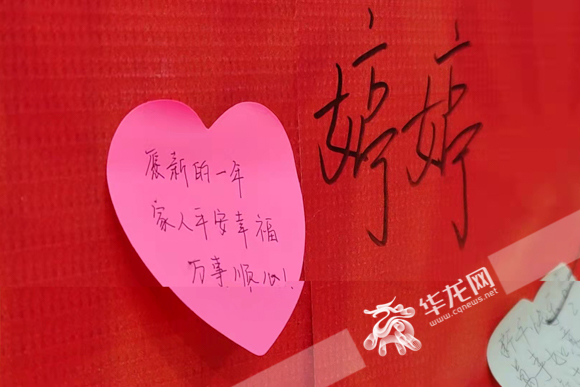 愿新的一年
家人平安幸福
万事顺心!
婷婷
华龙网
www.cqnews.net